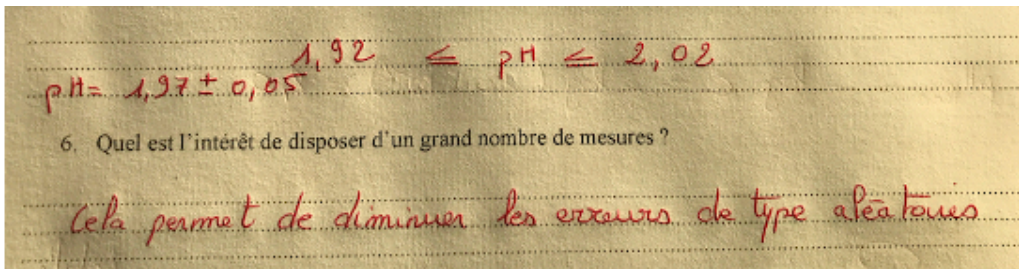 1,92 ≤ pH ≤ 2,02
pH= 1,97 ± 0,05
6. Quel est l'intérêt de disposer d'un grand nombre de mesures ?
Cela permet de diminuer les erreurs de type aléatoires